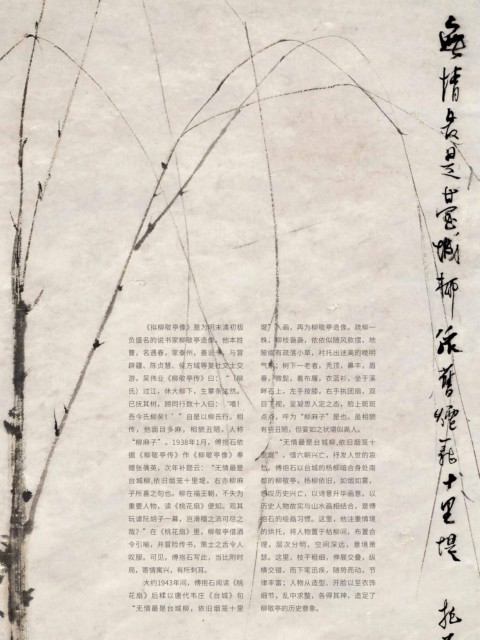 《拟柳敬亭像》是为明末清初极
负盛名的说书家柳敬亭造像。他本姓
曹，名遇春，家泰州，善说书，与冒
辟疆、陈贞慧、侯方域等复社文士交
游。吴伟业《柳敬亭传》曰：“（柳
氏）过江，休大柳下，生攀条泫然。
已抚其树，顾同行数十人曰：‘嘻！
吾今氏柳矣！’”自是以柳氏行。相
传，他面目多麻，相貌丑陋，人称
“柳麻子”。1938年1月，傅抱石依
据《柳敬亭传》作《柳敬亭像》奉
赠张倩英，次年补题云：“无情最是
台城柳,依旧烟笼十里堤。右亦柳麻
子所喜之句也。柳在福王朝，不失为
重要人物，读《桃花扇》便知。观其
玩谑阮胡子一幕，岂滑稽之流可尽之
哉？”在《桃花扇》里，柳敬亭借酒
令引喻，并冒险传书，黑士之舌令人
叹服。可见，傅抱石写此，当比附时
局，寄情微兴，有所刺耳。
大约1943年间，傅抱石阅读《桃
花扇》后糅以唐代韦庄《台城》句
“无情最是台城柳，依旧烟笼十里
堤”入画，再为柳敬亭造像。疏柳一
株，柳枝袅袅，依依似随风款摆。地
陂缀有疏落小草，衬托出迷离的晚明
气氛；树下一老者，秃顶，鼻丰，眉
春，微髭，着布履，衣蓝衫，坐于溪
畔石上，左手按膝，右手执团扇，双
目下视，呈凝思入定之态，脸上斑斑
点点，呼为“柳麻子”是也。虽相貌
有些丑陋，但宴如之状堪似高人。
“无情最是台城柳,依旧烟笼十
里堤”，借六朝兴亡，抒发人世的哀
愁。傅抱石以台城的杨柳暗合身处南
都的柳敬亭。杨柳依旧，如烟如雾。
感叹历史兴亡，以诗意升华画意，以
历史人物故实与山水画相结合，是傅
抱石的绘画习惯。这里，他注重情境
的烘托，将人物置于枯柳间，布置合
理，层次分明，空间深远，意境萧
瑟。这里，枝干粗细，停展交叠，纵
横交错，而下笔迅疾，随势而动，节
律丰富；人物从造型、开脸以至衣饰
细节，乱中求整，各得其神，造足了
柳敬亭的历史意象。
無情最是臺城柳依舊煙籠十里堤